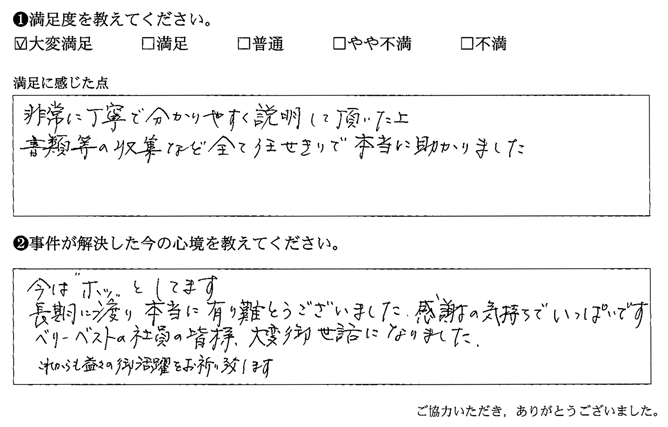 ❶満足度を教えてください。
☑大変満足 □満足 □普通 □やや不満 □不満
満足に感じた点
非常に丁寧で分かりやすく説明して頂いた上
書類等の収集など全て任せきりで本当に助かりました
❷事件が解決した今の心境を教えてください。
今は"ホッ"としてます
長期に渡り本当に有り難とうございました、感謝の気持ちでいっぱいです
ベリーベストの社員の皆様、大変御世話になりました、
これからも益々の御活躍をお祈り致します
ご協力いただき，ありがとうございました。